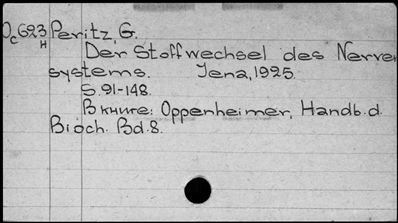 Oc693 Peritz, G.
H
Der Stoffwechsel des Nerven
systems. Jena, 1925.
S. 91-148.
В книге: Oppenheimer, Handb. d.
Bioch. Bd. 8.